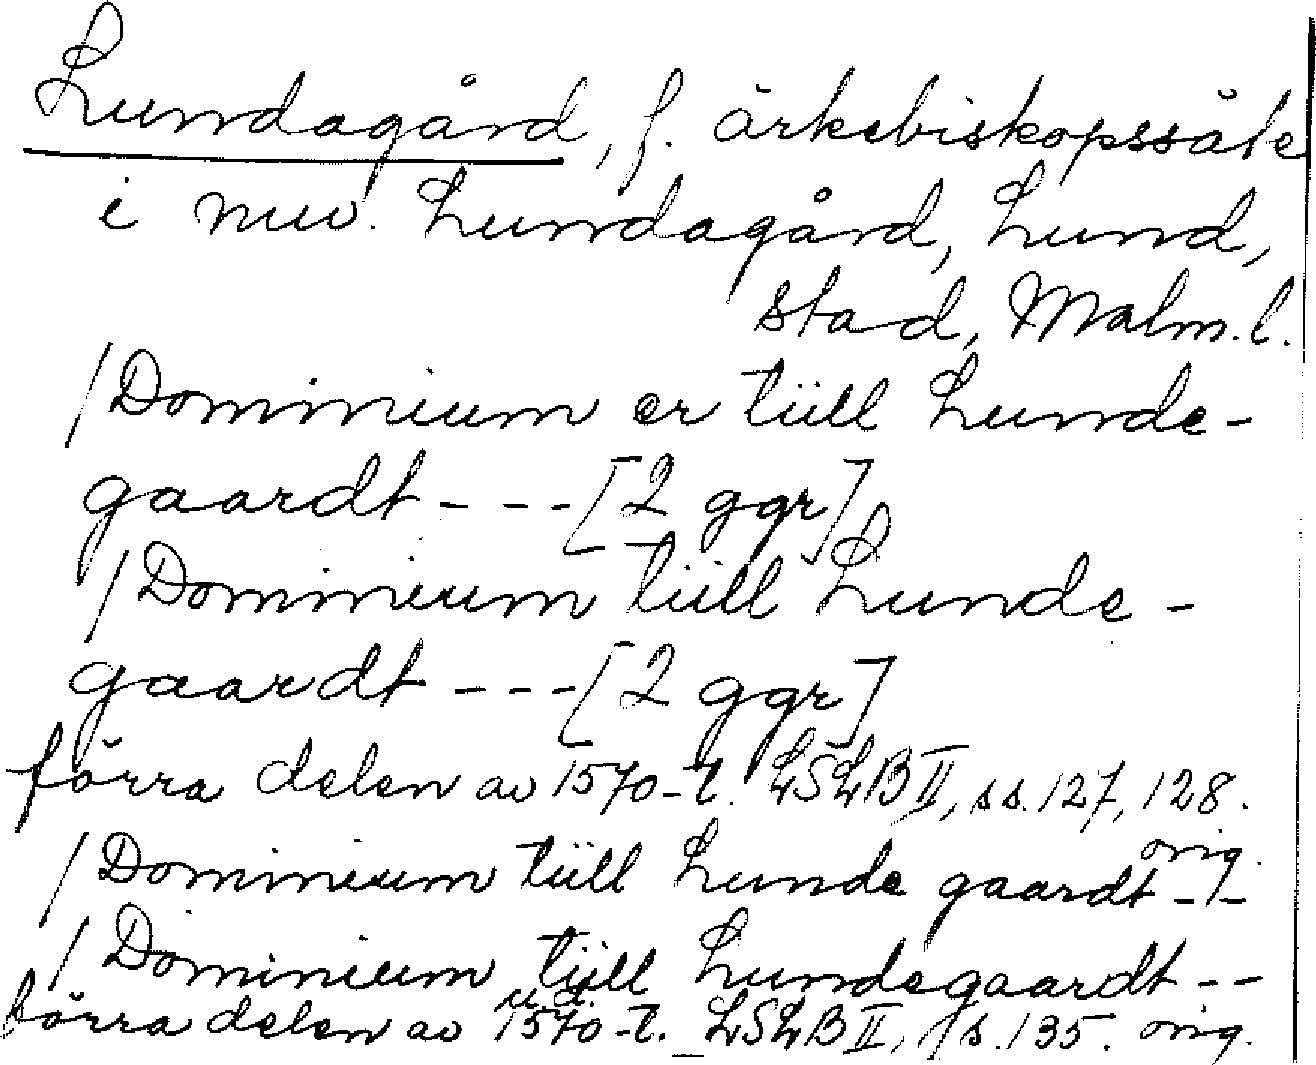 Lundagård, f. ärkebiskopssäte
i nuv. Lundagård, Lund,
stad, Malm. l.
/Dominium er tiill Lunde-
gaardt - - - [2 ggr]
/Dominium tiill Lunde-
gaardt - - - [2 ggr]
förra delen av 1570-t. LSLB II, ss. 127, 128.
orig.
/Dominium tiill Lunde gaardt - / -
/Dominium tiill Lundegaardt - -
u. å.
förra delen av 1570-t. LSLB II, s. 135. orig.